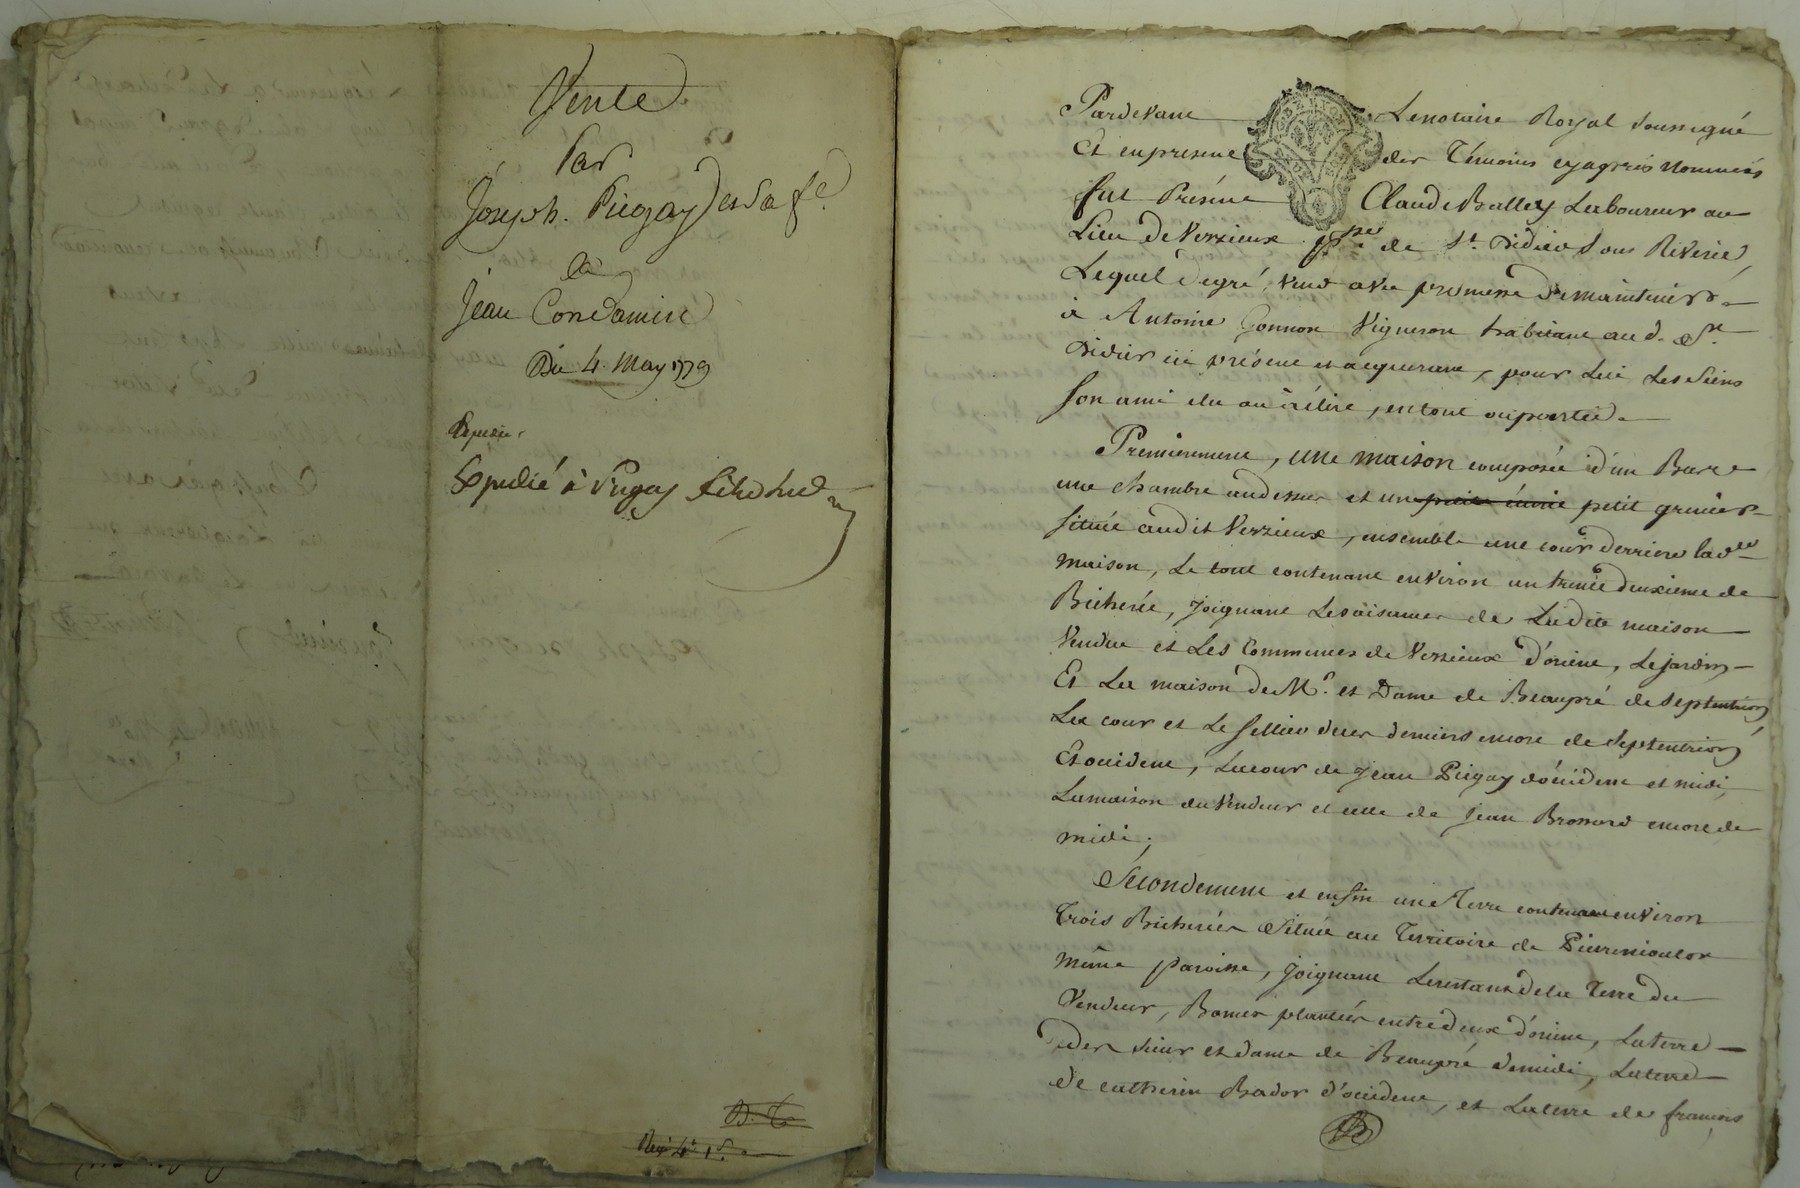 Vente
Par
Joseph Piegay et sa fe.
à
Jean Condamin
Du 4. May 1779
Expedié
Expedié à Piegay
B. C.
Reçu 4# 1s.
Pardevant Le notaire Royal soussigné
Et en presence des Témoins cy après nommés
fut Présent Claude Balley Laboureur au
Lieu de Verzieux psse. de St. Didier sous Riverie,
Lequel de gré, vend avec promesse de maintenir
à Antoine Gonnon Vigneron habitant aud. St.
Didier ici présent et acquerant, pour Lui Les Siens
son ami elu ou à élire, en tout ou partie.
Premierement, une maison composée d'un Bas
une chambre au dessus et un petit grenier
située audit Verzieux, ensemble une cour derriere lade.
maison, Le tout contenant environ un trente deuxieme de
Bicherée, joignant Les aisances de Ladite maison
Vendue et Les Communes de Verzieux d'orient, Le jardin
Et La maison de Mr. et Dame de Beaupré de septentrion
La cour et Le sellier des derniers encore de septentrion
Et occident, La cour de Jean Piegay d'occident et midi,
La maison du Vendeur et celle de Jean Brossard encore de
midi;
Secondement et enfin une Terre contenant environ
Trois Bicherées Située au Territoire de
même paroisse, joignant Le restant de la Terre du
Vendeur, Bornes plantées entre deux d'orient, La terre
des sieur et dame de Beaupré de midi, La terre
de catherin Bador d'occident, et La terre de françois